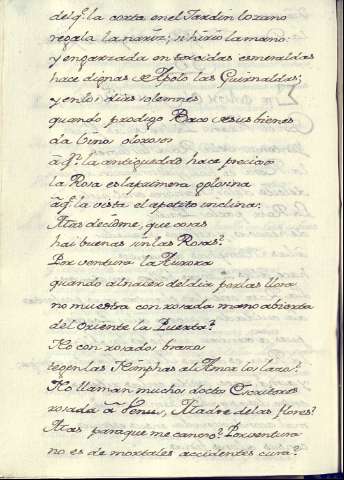 del q.e la corta en el Jardin lozano
regala la nariz; si hirio la mano:
y engarzada en torcidas esmeraldas
hace dignas de Apolo las Guirnaldas;
y en los dias solemnes
quando prodigo Baco de sus bienes
da Vino oloroso
à q.n la antiguedad hace precioso
la Rosa es la primera golosina
à q.e la vista el apetito inclina.
Mas decidme, que cosas
hai buenas sin las Rosas?
Por ventura la Aurora
quando al nacer del dia perlas llora
no muestra con rosada mano abierta
del Oriente la Puerta?
No con rosados brazos
tegen las Nimphas al Amor los lazos?
No llaman muchos doctos Escritores
rosada à Venus, Madre de las flores?
Mas paraque me canso? Por ventura
no es de mortales accidentes cura?